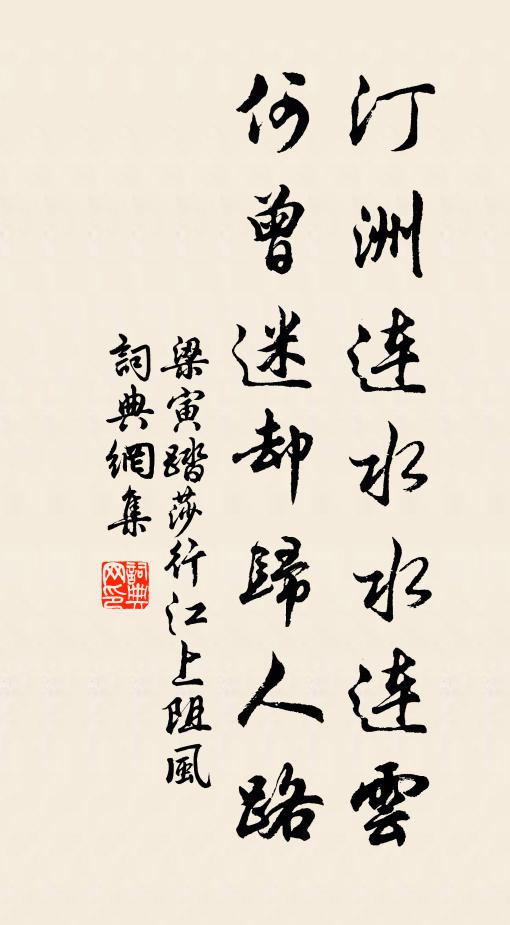 汀洲连水水连雲
何曾迷却歸人路
梁寅踏莎行江上阻風
詞典網集
詞典网印